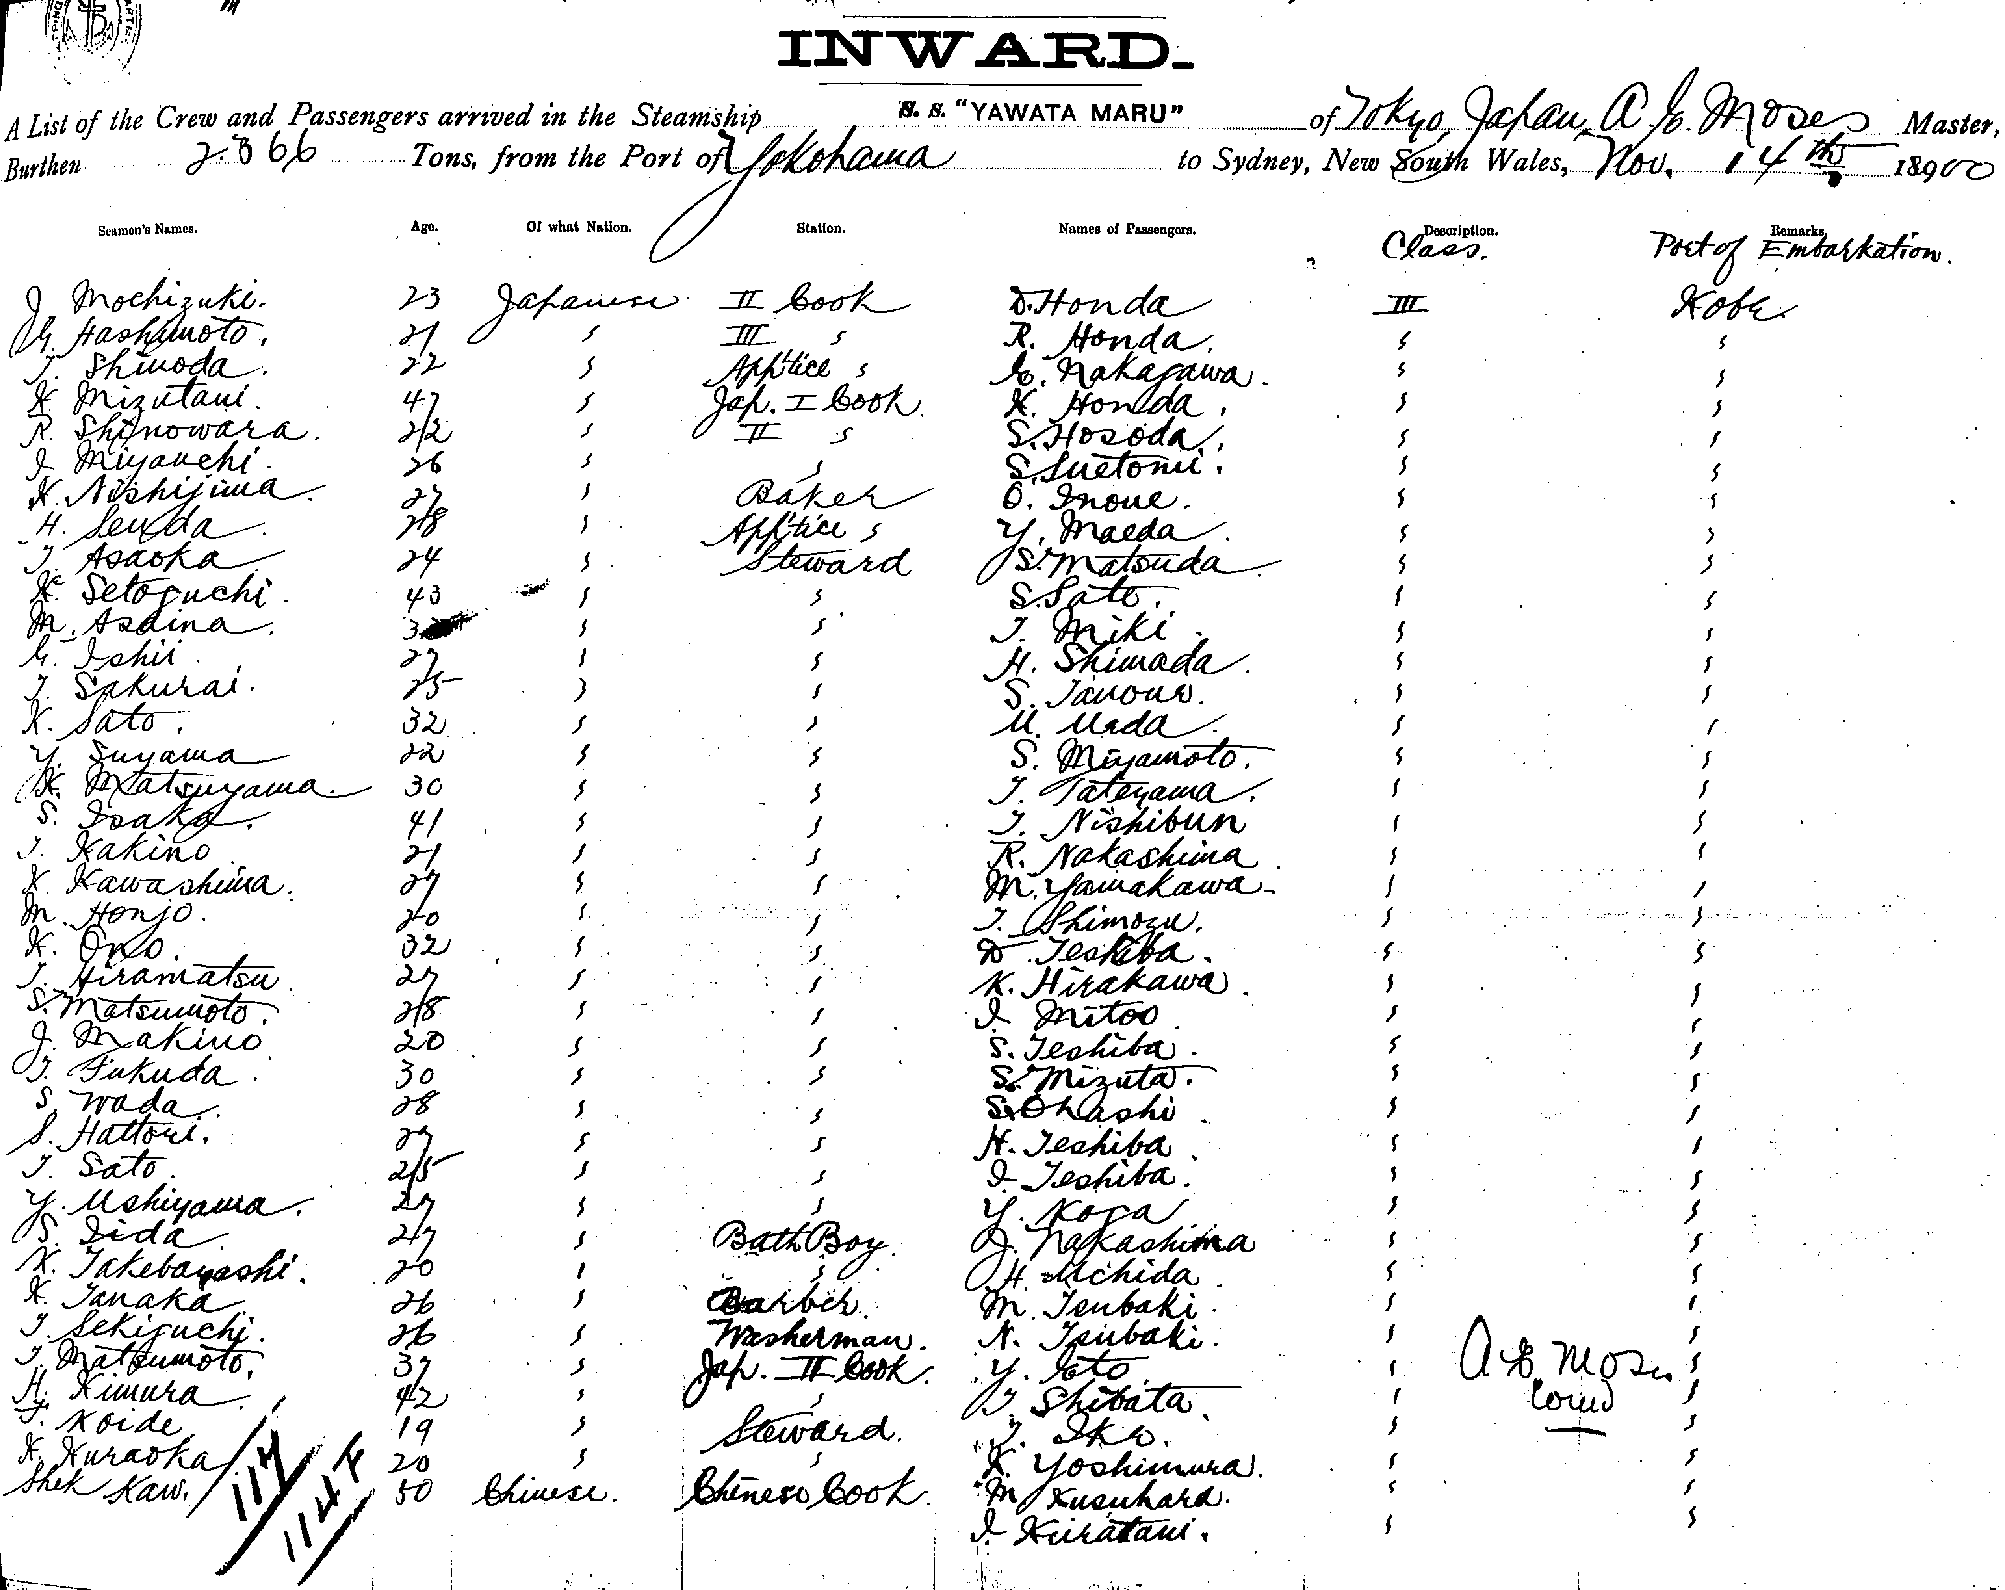 INWARD.
A List of the Crew and Passengers arrived in the Steamship S. S. "YAWATA MARU" of Tokyo, Japan, A E. Moses Master,
Burthen 2366 Tons, from the Port of Yokohama to Sydney, New South Wales, Nov. 14th 18900
Seamen's Names. Age. Of what Nation. Station. Names of Passengers. Description. Remarks.
Class. Port of Embarkation.
J Mochizuki. 23 Japanese II Cook D. Honda III Kobe.
G. Hashimoto. 21 " III " R. Honda. " "
T. Shimoda. 22 " App'tice " E. Nakagawa. " "
K Mizutani. 47 " Jap. I Cook. K. Honda. " "
R. Shinowara. 22 " II " S. Hosoda. " "
I Miyauchi. 26 " " S. Suetomi. " "
K. Nishijima. 27 " Baker O. Inoue. " "
H. Senda. 28 " App'tice " Y. Maeda. " "
T. Asaoka 24 " Steward S. Matsuda. " "
K. Setoguchi. 43 " " S. Sato. " "
M. Asaina. " " T. Miki. " "
G. Ishii. 27 " " H. Shimada. " "
T. Sakurai. 25 " " S. " "
K. Sato. 32 " " M. " "
Y. Suyama 22 " " S. Miyamoto. " "
K. Matsuyama. 30 " " T. Tateyama. " "
S. Isaka. 41 " " T. Nishibun " "
T. Kakino 21 " " R. Nakashima. " "
K. Kawashima. 27 " " M. Yamakawa. " "
M. Honjo. 20 " " T. Shimozu. " "
K. Ono. 32 " " D. Teshiba. " "
T. Hiramatsu. 27 " " K. Hirakawa. " "
S. Matsumoto. 28 " " I Mitoo " "
J. Makino 20 " " S. Teshiba. " "
T. Fukuda. 30 " " S. Mizuta. " "
S. Wada. 28 " " S. Ohashi. " "
S. Hattori. 27 " " H. Teshiba. " "
T. Sato. 25 " " I. Teshiba. " "
Y. Ushiyama. 27 " " Y. Koga " "
S. Iida 27 " Bath Boy. J. Nakashima " "
K. Takebayashi. 20 " " H. Uchida. " "
K. Tanaka. 26 " Barber. M. Tsubaki. " "
T. Sekiguchi. 26 " Washerman. N. Tsubaki. " "
T. Matsumoto. 37 " Jap. II Cook. Y. Eto " A E Moses "
H. Kimura. 42 " " T. Shibata. " "
T. Koide 19 " Steward. T. " "
K. Kuraoka 20 " " K. Yoshimura. " "
Shek Kaw. 50 Chinese. Chinese Cook. M Kusuhara. " "
117 114 I. Kuratani. " "